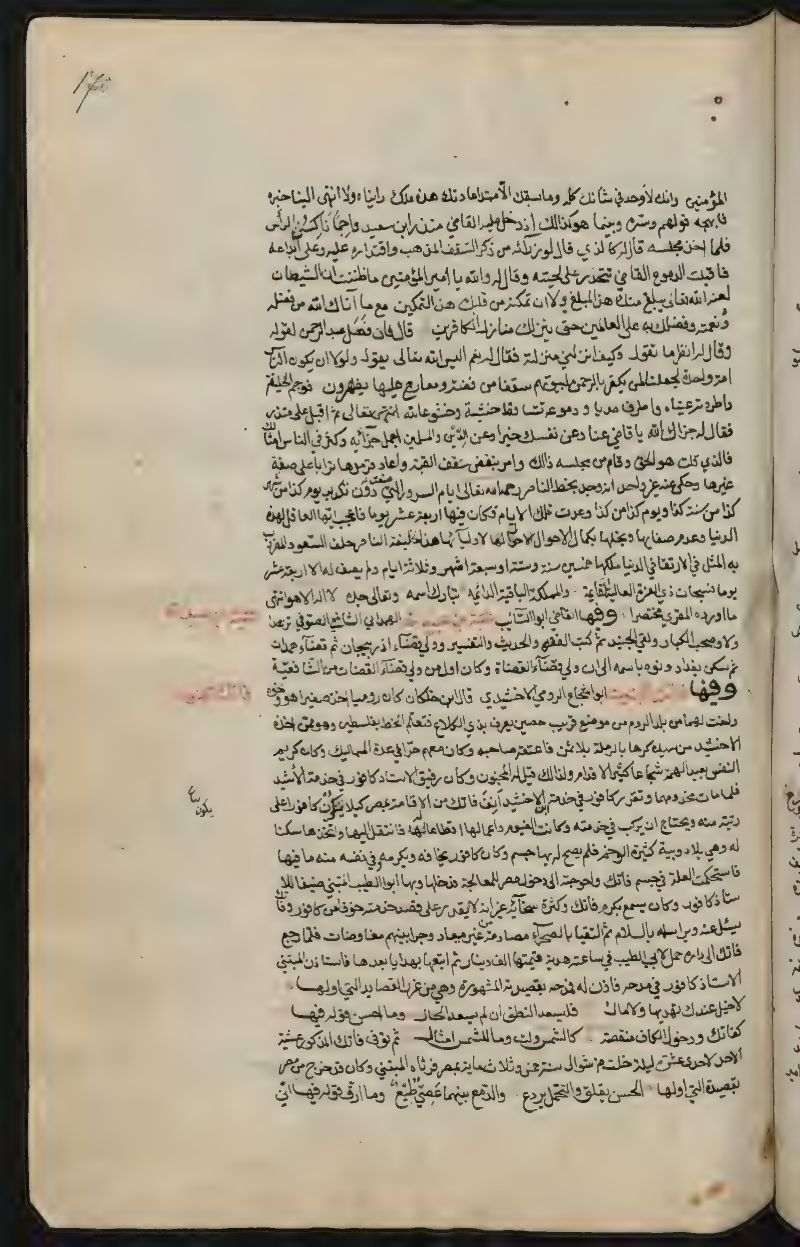 ١٧٥
المؤمنين وانك لأوحد في شانك كله وما سبقك الا متداعا دتك هذه ملك رايناه ولا انتهى الينا خبره
فابهجه قولهم وسره وبينما هو كذالك إذ دخل عليه القاضي منذر ابن سعيد واجمًا ناكس الرأس
فلما اخذ مجلسه قال له كالذي قال لوزرائه من ذكر السقف المذهب واقتداره عليه وعلى ابداعه
فاقبلت الدموع القاضي تتحدر على لحيته وقال له والله يا امير المؤمنين ما ظننت ان الشيطان
لعنه الله تعالى يبلغ منك هذا المبلغ ولا ان تمكنه من قلبك هذا التمكين مع ما اتاك الله من فضله
ونعمته وفضلك به على العالمين حتى ينزلك منازل الكافرين قال فانفصل عبد الرحمن لقوله
وقال له انظر ما تقول وكيف انزلني منزلته فقال له نعم اليس الله تعالى يقول ولولا ان يكون الناس
امة واحدة لجعلنا لمن يكفر بالرحمن لبيوتهم سقفا من فضة ومعارج عليها يظهرون فوجم الخليفة
واطرق مليا ودموعه تتساقط خشية وخشوعا لله تعالى ثم اقبل على منذر
فقال له جزاك الله يا قاضي عنا وعن نفسك خيرا وعن الدين والمسلمين اجمل جزائه وكثر في الناس امثالك
فالذي قلت هو الحق وقام من مجلسه ذالك وامر بنقض سقف القبة واعاد قرمدها ترابا على صفة
غيرها وحكى عنه غير واحد انه وجد بخط الناصر رحمه الله تعالى ايام السرور التي صفت دون تكدير يوم كذا من شهر
كذا من سنة كذا ويوم كذا من كذا وعدت تلك الايام فكان فيها اربعة عشر يوما فاعجب ايها العاقل لهذه
الدنيا وعدم صفائها وبخلها بكمال الاحوال لاوليائها هذا الخليفة الناصر حلف السعود المضروب
به المثل في الارتقا في الدنيا ملكها خمسين سنة وستة او سبعة اشهر وثلاثة ايام ولم يصف له الا اربعة عشر
يوما فسبحان ذي العزة العالية القائمة والمملكة الباقية الدائمة تبارك اسمه وتعالى جده لا اله الا هو انتهى
ما اورده المقري مختصرا وفيها القاضي ابو السائب عتبة بن عبيد الله الهمداني الشافعي الصوفي تزهد
اولا وصحب الكبار ولقي الجنيد ثم كتب الفقه والحديث والتفسير وولي قضاء اذربيجان ثم قضاء همدان
ثم سكن بغداد ونوه باسمه الى ان ولي قضاء القضاة وكان اول من ولي قضاء القضات من الشافعية
وفيها ابو شجاع الرومي الاخشيدي قال ابن خلكان كان روميا اخذ صغيرا هو واخوه
واخت لهما من بلد الروم من موضع قريب حصن يعرف بذي الكلاع فتعلم الخط بفلسطين وهو ممن اخذه
الاخشيد من سيده كرها بالرملة بلا ثمن فاعتقه صاحبه وكان معهم حرا في عدة المماليك وكان كريم
النفس بعيد الهمة شجاعا كثير الاقدام ولذالك قيل له المجنون وكان رفيق الاستاذ كافور في خدمة الاخشيد
فلما مات مخدومهما وتقرر كافور في خدمة ابن الاخشيد انف فاتك من الاقامة بمصر كيلا يكون كافور اعلى
رتبة منه ويحتاج ان يركب في خدمته وكانت الفيوم واعمالها اقطاعا له فانتقل اليها واتخذها سكنا
له وهي بلاد وبية كثيرة الوخم فلم يصح له بها جسم وكان كافور يخافه ويكرمه في نفسه منه ما فيها
فاستحكمت العلة في جسم فاتك واحوجته الى دخول مصر للمعالجة فدخلها وبها ابو الطيب المتنبي ضيفا للا
ستاذ كافور وكان يسمع بكرم فاتك وكثرة سخائه غير انه لا يقدر على قصد خدمته خوفا من كافور وفاتك
يسئل عنه ويراسله بالسلام ثم التقيا بالصحراء مصادفة من غير ميعاد وجرا بينهم مفاوضات فلما رجع
فاتك الى داره حمل لابي الطيب في ساعته هدية قيمتها الف دينار ثم اتبعها بهدايا بعدها فاستاذن المتنبي
الاستاذ كافور في مدحه فاذن له فمدحه بقصيدته المشهورة وهي من غرر القصايد التي اولها.
لا خيل عندك تهديها ولا مال فليسعد النطق ان لم يسعد الحال وما احسن قوله فيها
كفاتك ودخول الكاف منقصة كالشمس قلت وما للشمس امثال ثم توفى فاتك المذكور عشية
الاحد لاحدى عشرة ليلة خلت من شوال سنة خمسين وثلاث ماية بمصر فرثاه المتنبي وكان قد خرج من مصر
بقصيدة التي اولها الحسن يقلق والتجمل يردع والدمع بينهما عصي طيع وما ارق قوله فيها اني
يكون